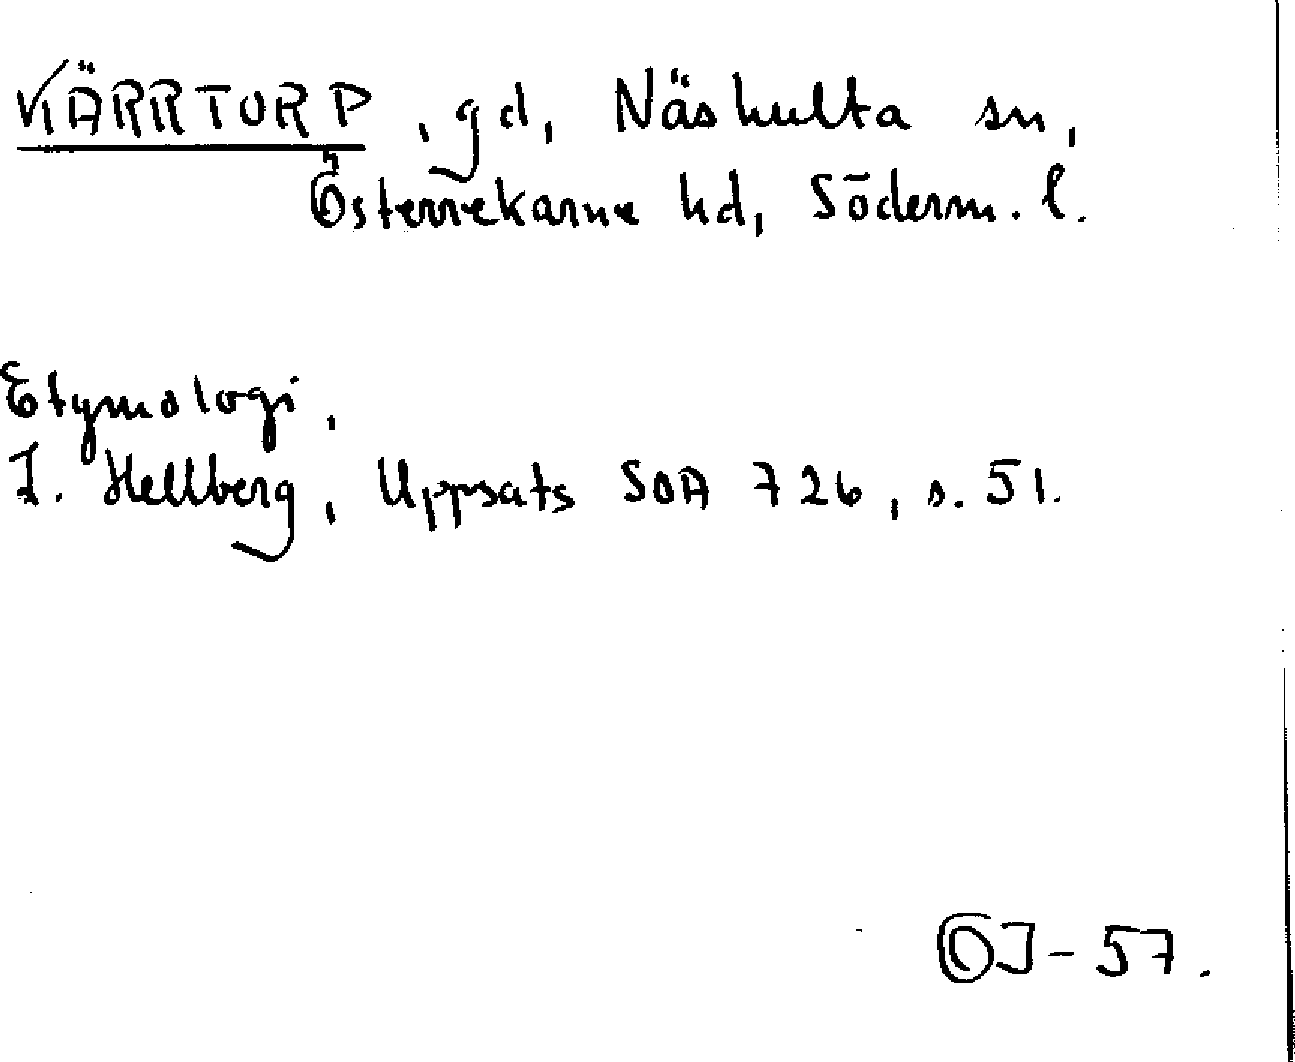 KÄRRTORP, gd, Näshulta sn,
Österrekarne hd, Söderm. l.
Etymologi,
I. Hellberg, Uppsats SOA 726, s. 51.
OJ-57.